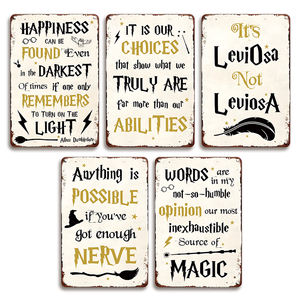 HAPPINESS
CAN BE
FOUND Even
in the DARKEST
Of times if one only
REMEMBERS
TO TURN ON THE
LIGHT
Albus Dumbledore
IT IS OUR
CHOICES
that show what we
TRULY ARE
far more than our
ABILITIES
It's
LeviOsa
Not
LeviosA
Anything is
POSSIBLE
if you've
got enough
NERVE
WORDS are
in my
not-so-humble
opinion our most
inexhaustible
Source of
MAGIC